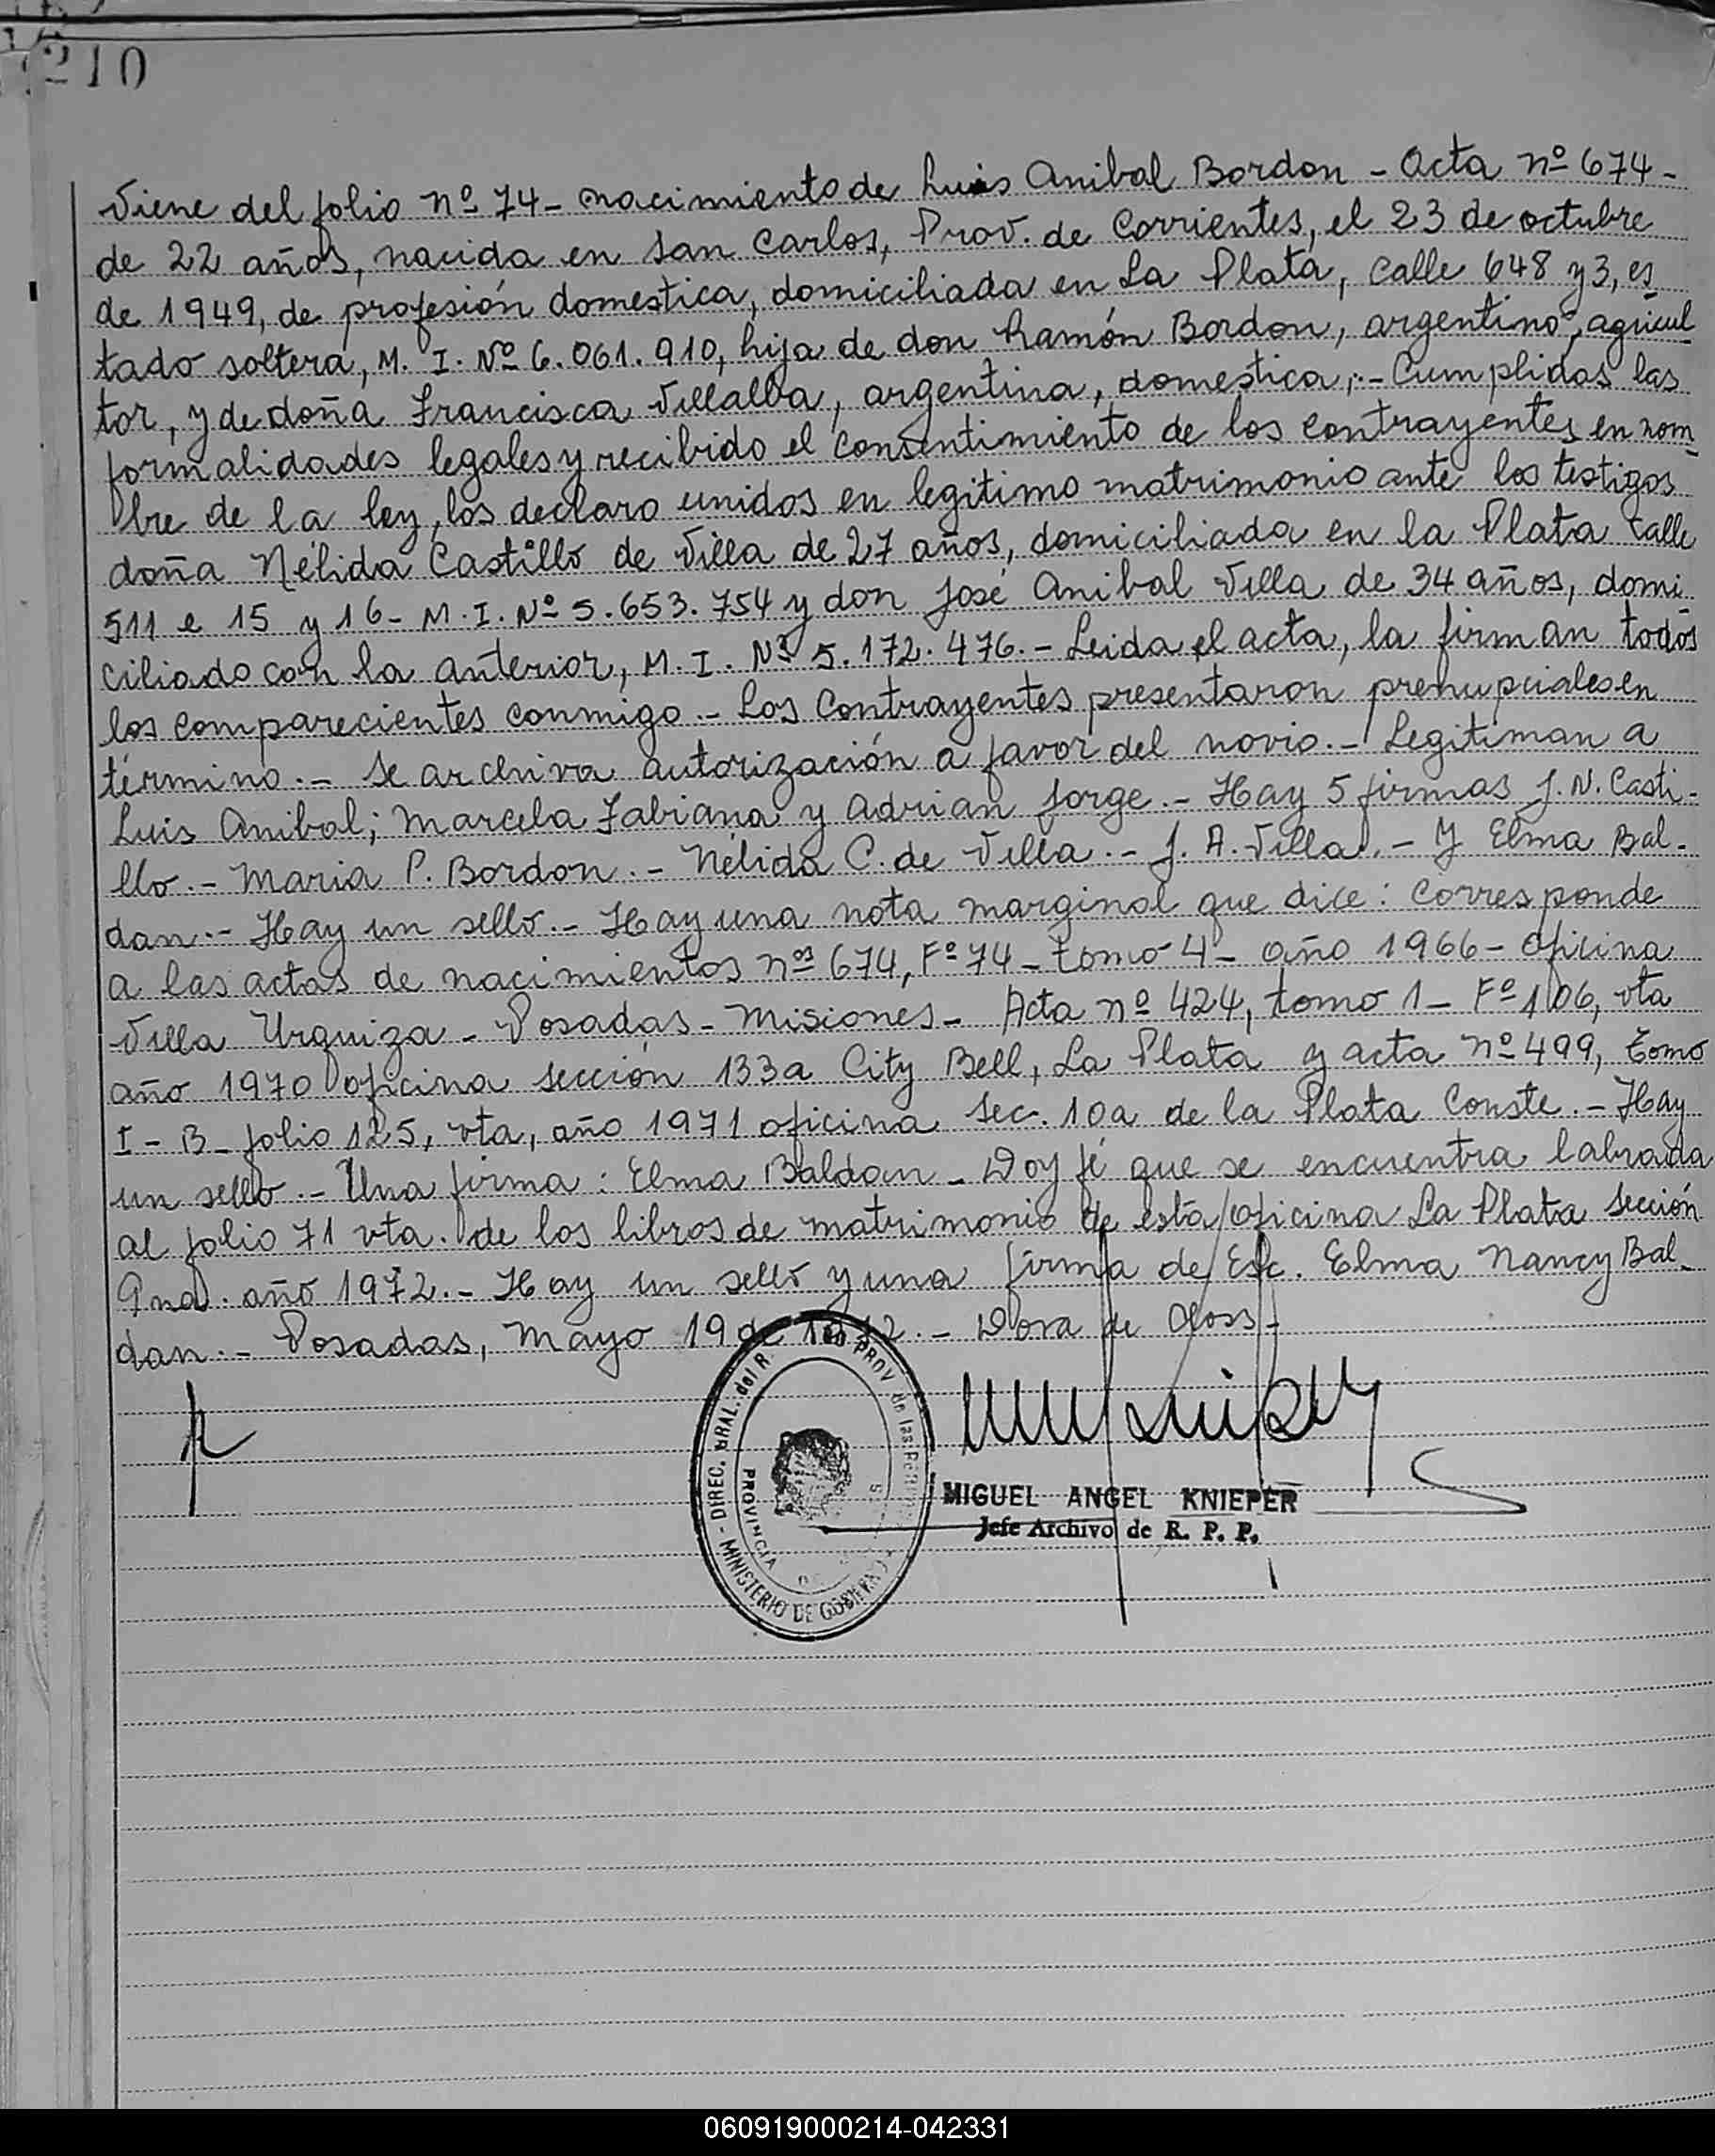 210
Viene del folio nº 74 - nacimiento de Luis Anibal Bordon - Acta nº 674 -
de 22 años, nacida en San Carlos, Prov. de Corrientes, el 23 de octubre
de 1949, de profesión domestica, domiciliada en La Plata, calle 648 y 3, es
tado soltera, M. I. Nº 6.061.910, hija de don Ramón Bordon, argentino, agricul
tor, y de doña Francisca Villalba, argentina, domestica,.- Cumplidas las
formalidades legales y recibido el consentimiento de los contrayentes en nom
bre de la ley, los declaro unidos en legitimo matrimonio ante los testigos
doña Nélida Castillo de Villa de 27 años, domiciliada en la Plata calle
511 e 15 y 16 - M. I. Nº 5.653.754 y don José Anibal Villa de 34 años, domi
ciliado con la anterior, M. I. Nº 5.172.476.- Leida el acta, la firman todos
los comparecientes conmigo.- Los contrayentes presentaron prenupciales en
término.- Se archiva autorización a favor del novio.- Legitiman a
Luis Anibal; Marcela Fabiana y Adrian Jorge.- Hay 5 firmas J. N. Casti-
llo.- Maria P. Bordon.- Nélida C. de Villa.- J. A. Villa.- Y Elma Bal-
dan.- Hay un sello.- Hay una nota marginal que dice: Corresponde
a las actas de nacimientos nos 674, Fº 74 - tomo 4 - año 1966 - oficina
Villa Urquiza - Posadas - Misiones - Acta nº 424, tomo 1 - Fº 106, vta
año 1970 oficina sección 133a City Bell, La Plata y acta nº 499, tomo
I - B - folio 125, vta, año 1971 oficina Sec. 10a de la Plata Conste.- Hay
un sello.- Una firma: Elma Baldan - Doy fé que se encuentra labrada
al folio 71 vta. de los libros de matrimonio de esta oficina La Plata Sección
9na. año 1972.- Hay un sello y una firma de Esc. Elma Nancy Bal-
dan.- Posadas, Mayo 19 de 1972.- Dora de
DIREC. GRAL. del R. PROV. de las
PROVINCIA
MINISTERIO DE GOBIERNO
MIGUEL ANGEL KNIEPER
Jefe Archivo de R. P. P.
060919000214-042331